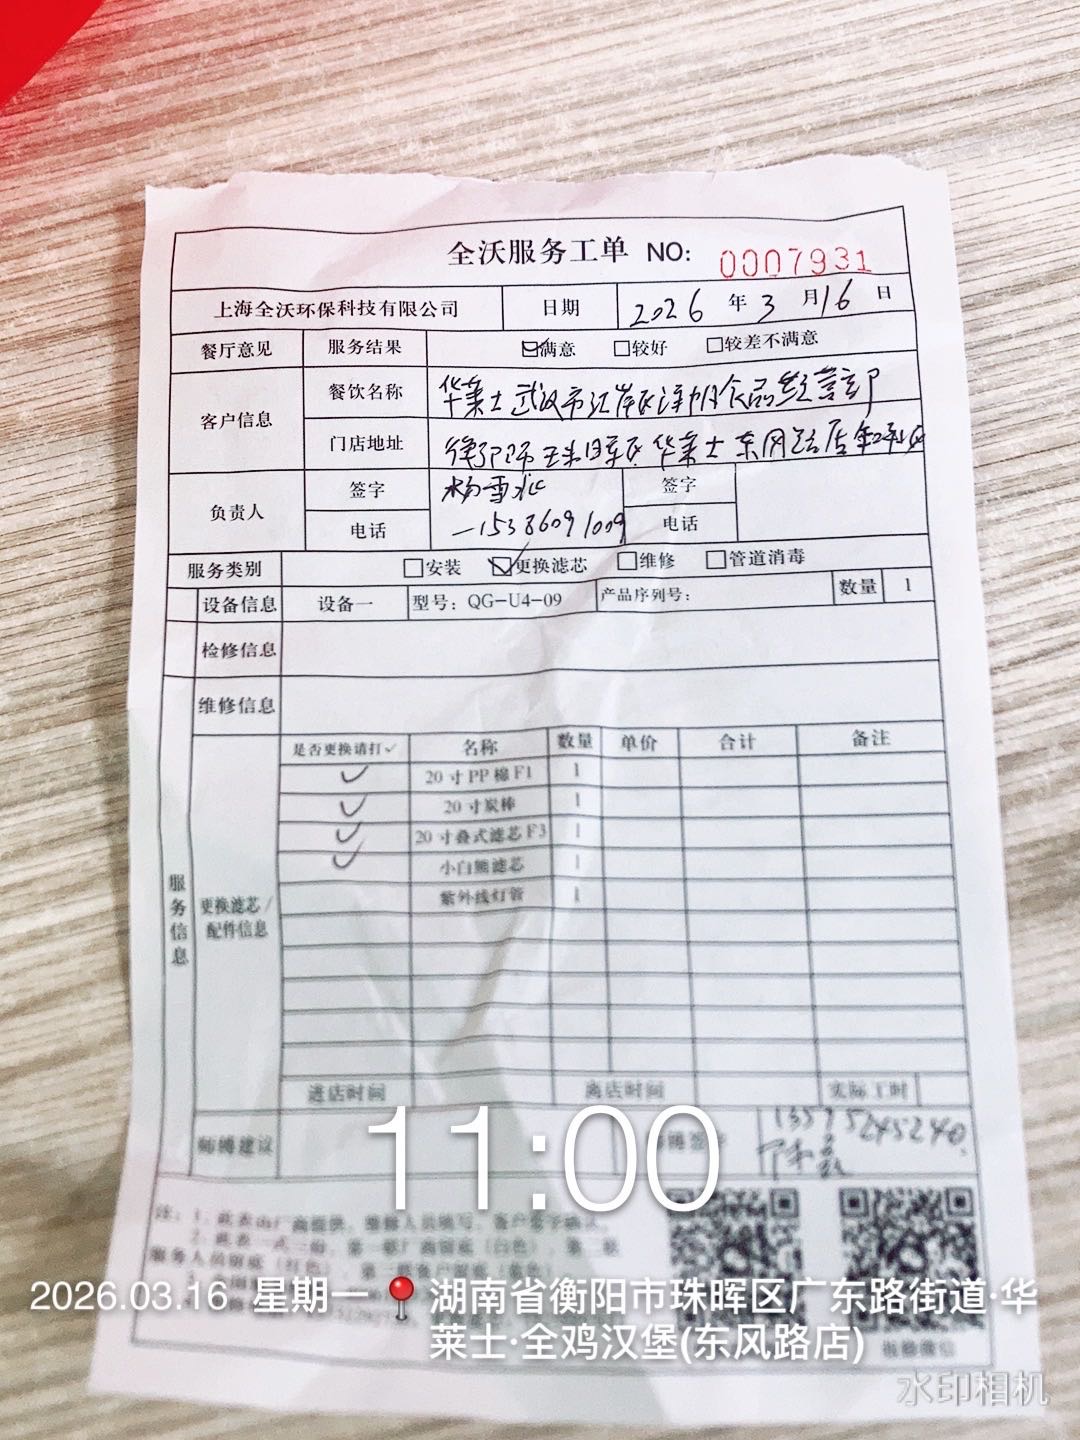 全沃服务工单 NO: 0007931
上海全沃环保科技有限公司 日期 2026 年 3 月 16 日
餐厅意见 服务结果 ☑满意 □较好 □较差不满意
客户信息 餐饮名称 华莱士武汉市江岸区津帆食品经营部
门店地址 衡阳市珠晖区华莱士东风路店
负责人 签字 杨雪 签字
电话 15386091009 电话
服务类别 □安装 ☑更换滤芯 □维修 □管道消毒
设备信息 设备一 型号: QG-U4-09 产品序列号: 数量 1
检修信息
维修信息
服务信息
更换滤芯/配件信息
是否更换请打✓ 名称 数量 单价 合计 备注
✓ 20寸PP棉F1 1
✓ 20寸炭棒 1
✓ 20寸叠式滤芯F3 1
✓ 小白熊滤芯 1
紫外线灯管 1
进店时间 离店时间 实际工时
师傅建议 师傅签字 13575245240
注: 1、此表由厂商提供, 维修人员填写, 客户签字确认。
2、此表一式三份, 第一联厂商留底(白色), 第二联
服务人员留底(红色), 第三联客户留底(黄色)
11:00
2026.03.16 星期一 📍湖南省衡阳市珠晖区广东路街道·华
莱士·全鸡汉堡(东风路店)
水印相机